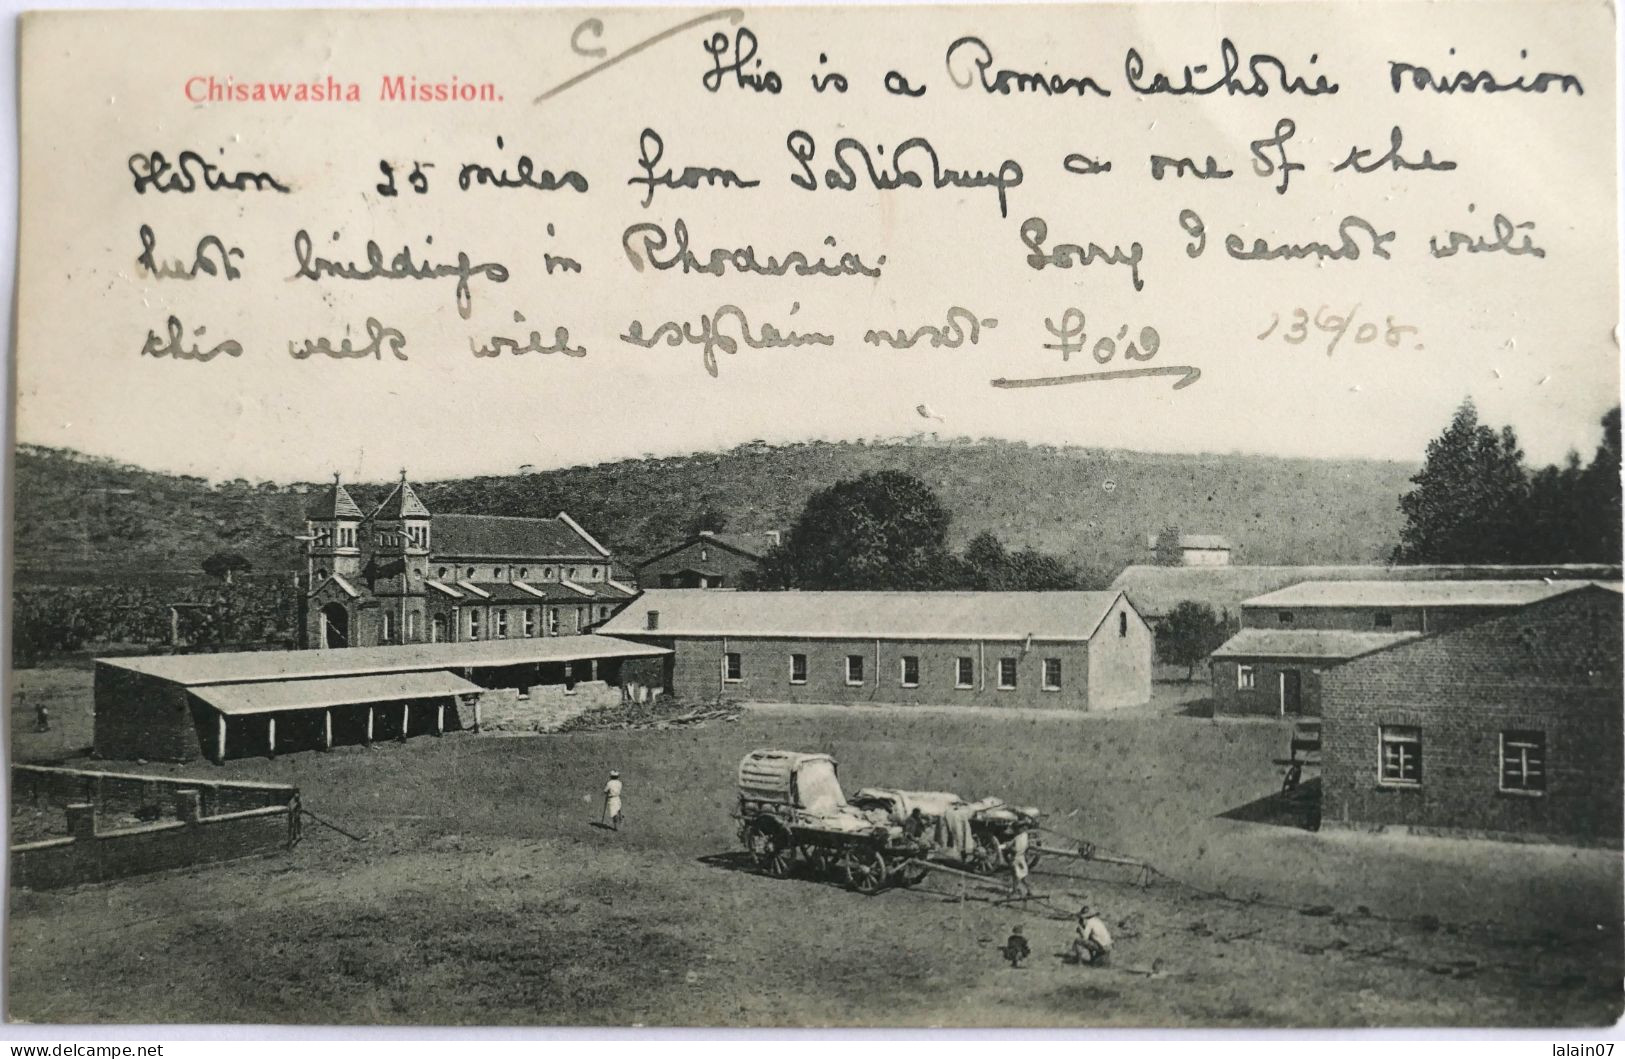 C
Chisawasha Mission.
This is a Roman Catholic mission
station 25 miles from Salisbury & one of the
best buildings in Rhodesia. Sorry I cannot write
this week will explain next
13/6/08.
delcampe.net
lalain07